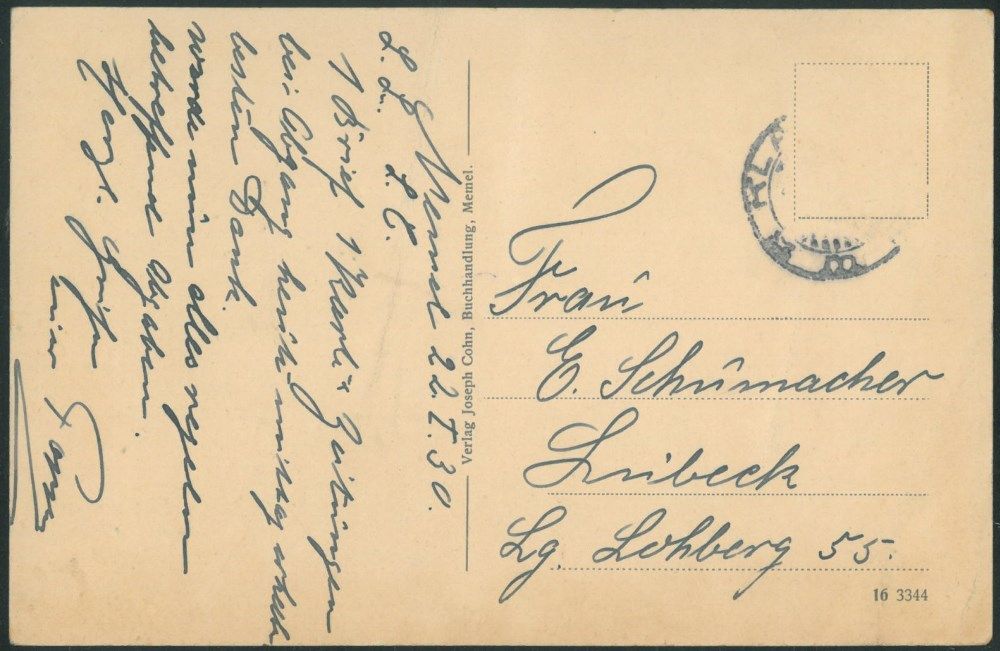 Memel 22.I.30.
L. E.
1 Brief 1 Karte & Zeitungen
bei Abgang heute mittag erhalten
besten Dank.
werde nun alles regeln
betreffend Abgaben.
Herzl. Grüße
Verlag Joseph Cohn, Buchhandlung, Memel.
Frau
E. Schumacher
Lübeck
Lg. Lohberg 55.
16 3344